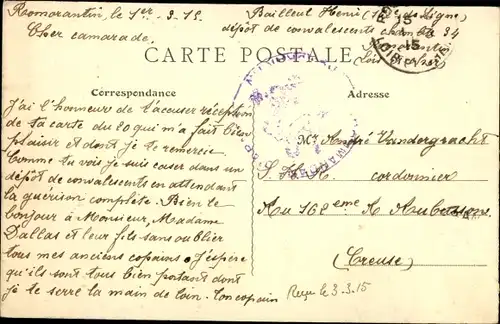 Romorantin, le 1er - 3 - 15
Cher camarade.
Bailleul Henri
dépôt de convalescents chambre 24
Romorantin
Loir et Cher
CARTE POSTALE
Correspondance
Adresse
J'ai l'honneur de t'accuser réception
de ta carte du 20 qui m'a fait bien
plaisir et dont je te remercie
Comme tu vois je suis caser dans un
dépôt de convalescents en attendant
la guérison complète. Bien le
bonjour à Monsieur, Madame
Dallas et leur fils sans oublier
tous mes anciens copains. J'espère
qu'ils sont tous bien portants dont
je te serre la main de loin. Ton copain
Mr André Vandergracht
S. H. R. cordonnier
Au 162eme R Aubusson
(Creuse)
Reçu le 3-3-15